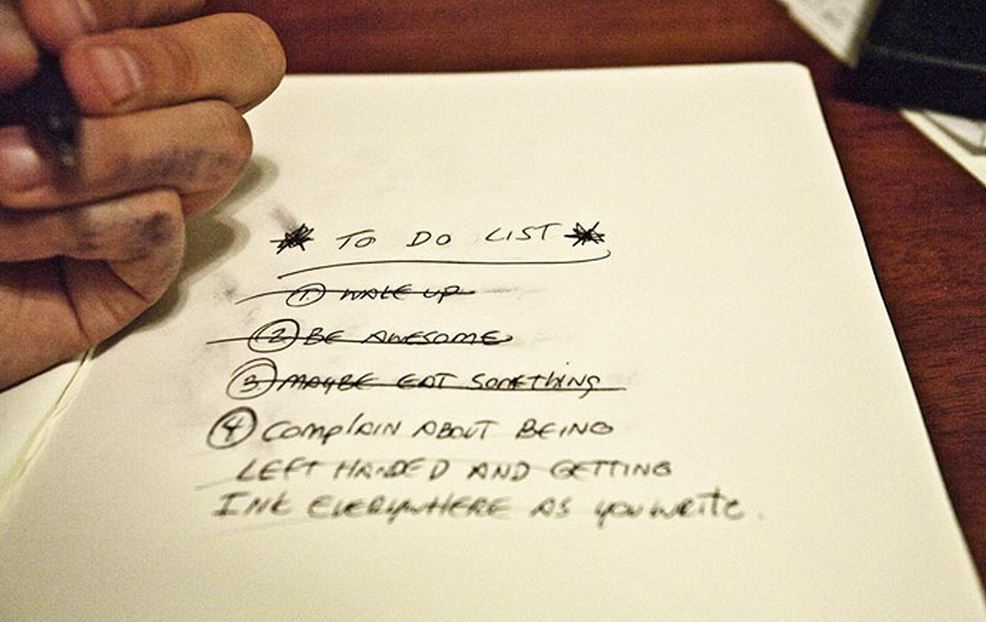 * TO DO LIST *
1. WAKE UP
2. BE AWESOME
3. MAYBE EAT SOMETHING
4 COMPLAIN ABOUT BEING
LEFT HANDED AND GETTING
INK EVERYWHERE AS YOU WRITE.